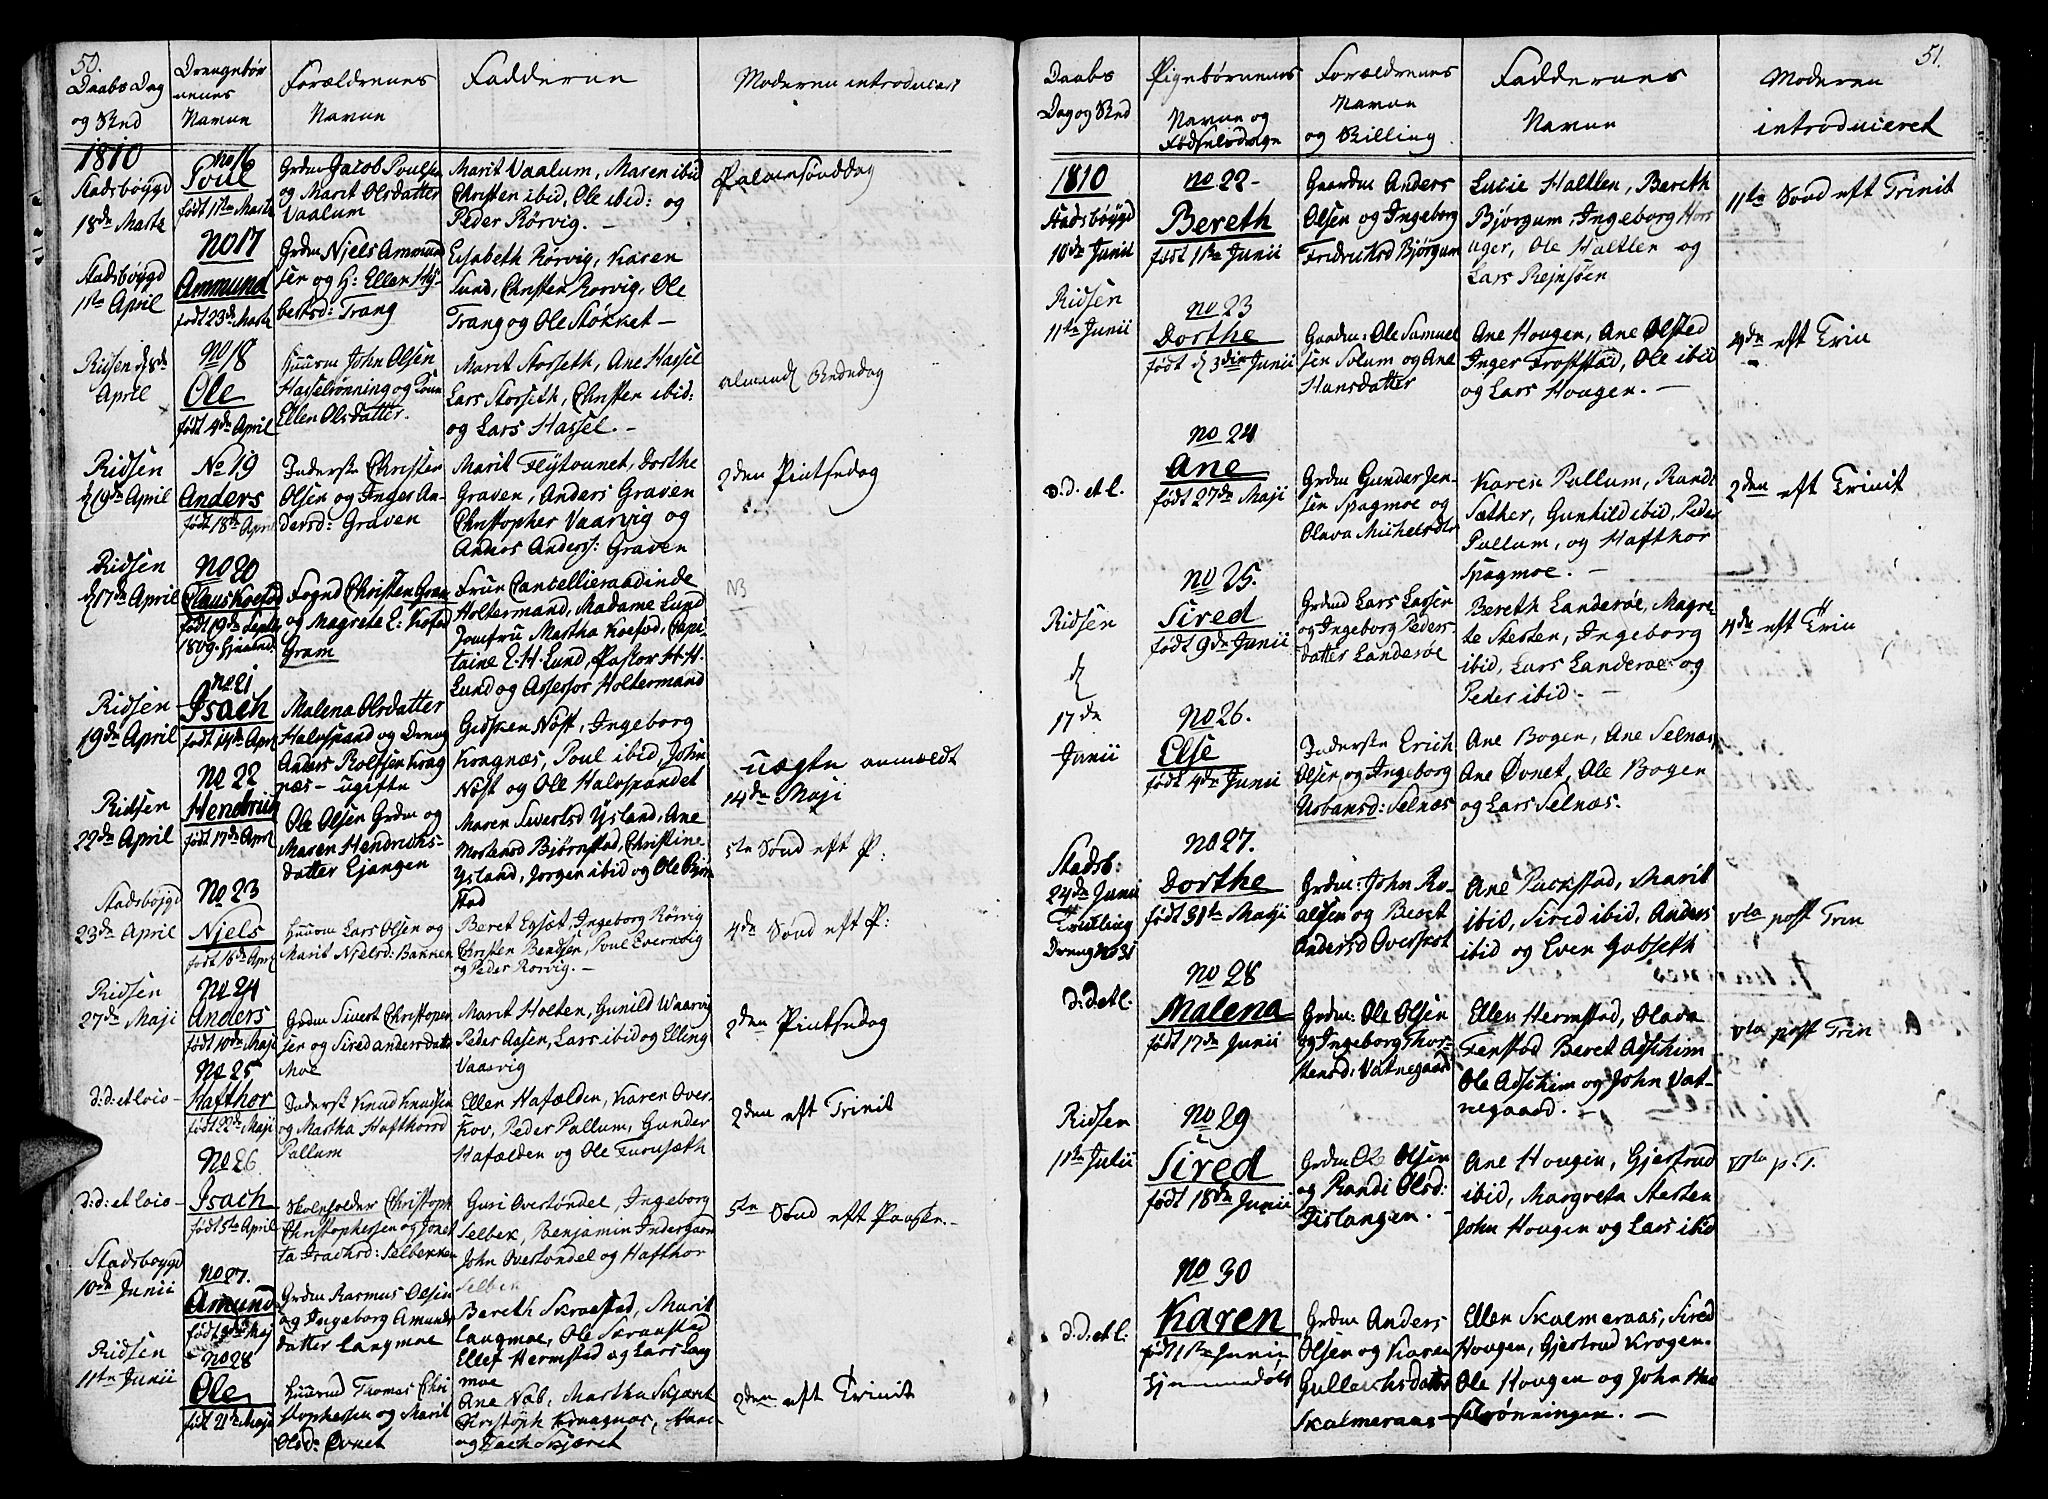 50.
Daabs Dag
og Sted
Drengebør
nenes
Navne
Forældrenes
Navne
Fadderne
Moderen introduceret
1810
Stadsbøygd
18de Marts
No 16
Poul
født 11te Marts
Grdm Jacob Poulsen
og Marit Olsdatter
Vaalum
Marit Vaalum, Maren ibid
Christen ibid, Ole ibid: og
Peder Rørvig. —
Palmesønddag
Stadsbøygd
11te April
No 17
Ammund
født 23de Marts
Grdm Njels Ammund
sen og H: Ellen
bertsd: Trang
Elisabeth Rørvig, Karen
Lund, Christen Rørvig, Ole
Trang og Ole Støkket —
Ridsen d 8de
April
No 18
Ole
født 4de April
Huusm John Olsen
Hasselrønning og Kone
Ellen Olsdatter.
Marit Storseth, Ane Hassel
Lars Storseth, Christen ibid:
og Lars Hassel. —
almind Bededag
Ridsen
d 19de April
No 19
Anders
født 18de April
Inderste Christen
Olsen og Inger An-
dersd: Graven
Marit Flytounet, Dorthe
Graven, Anders Graven
Christopher Vaarvig og
Anders Anderss: Graven
2den Pintsedag
Ridsen
d 17de April
No 20
Claus Koefod
født 19de Septbr
1809. hjemmed.
Fogd Christen Gram
og Magrete E: Kofod
Gram
Frue Cancellieraadinde
Holtermand, Madame Lund
Jomfru Martha Koefod, Capi-
taine E. H. Lund, Pastor H. H.
Lund og Assessor Holtermand
NB
Ridsen
19de April
No 21
Isach
født 14de April
Malena Olsdatter
Halvspand og Dreng
Anders Rolfsen Krag
næs — ugifte
Gidsken Nøst, Ingeborg
Kragnæs, Poul ibid, John
Nøst og Ole Halvspandet
uægte anmældt
14de Maji
Ridsen
22de April
No 22
Hendrich
født 17de April
Ole Olsen Grdm og
Maren Hendrichs-
datter Ejangen
Maren Sivertsd Ysland, Ane
Mortensd Bjørnstad, Christine
Ysland, Jorgen ibid og Ole Bjørn
stad
5te Sønd eft P:
Stadsbøjgd
23de April
No 23
Njels
født 16de April
Huusm Lars Olsen og
Marit Njelsd: Bakken
Beret Eyset, Ingeborg Rørvig
Christen Bendsen, Poul Evernvig
og Peder Rorvig. —
4de Sønd eft P:
Ridsen
27de Maji
No 24
Anders
født 10de Maji
Grdm Sivert Christopher
sen og Sired Andersdatt
Moe
Marit Holten, Gunild Waarvig
Peder Aasen, Lars ibid og Elling
Vaarvig
2den Pintsedag
d: d: et loio —
No 25
Hafthor
født 22de Maji
Inderst Knud Knudsen
og Martha Hafthorsd
Pallum
Ellen Hafælden, Karen Over-
Kov, Peder Pallum, Gunder
Hafælden og Ole Furuseth
2den eft Trinit
d: d: et loio —
No 26
Isach
født 5te April
Skoleholder Christoph
Christophersen og Jonet
ta Isachsd: Selbekken
Guri Overstøndel, Ingeborg
Selbek, Benjamin Indergaarn
John Overstøndel og Hafthor
Selbek
5te Sønd eft Paaske. —
Stadsboygd
10de Junii
No 27.
Amund
Grdm Rasmus Olsen
og Ingeborg Amunds
datter Langmoe
Bereth Skraastad, Marit
Langmoe, Ole Skraastad
Ellef Hermstad og Lars Lang
moe
Ridsen
11te Junii
No 28
Ole
født 21de Maji
Huusmd Thomas Chri
stophersen og Marit
Olsd: Ovnet
Ane Næb, Martha Skjæret
Christoph Kragnæs,
og Isach Skjæret
2den eft Trinit
51.
Daabs
Dag og Sted
Pigebørnenes
Navne og
Fødselsdage
Forældrenes
Navne
og Stilling
Faddernes
Navne
Moderen
introduceret
1810
Stadsbøygd
10de Junii
No 22 —
Bereth
født 1ste Junii
Gaardm Anders
Olsen og Ingeborg
Fredriksd Bjørgum
Lucie Haltlen, Bereth
Bjørgum, Ingeborg Hors
ager, Ole Haltlen og
Lars Rejnsøen
11te Sønd eft Trinit
Ridsen
11te Junii
No 23
Dorthe
født d 3die Junii
Gaardm: Ole Samuel
sen Solum og Ane
Hansdatter
Ane Hougen, Ane Olsted
Inger Frostad, Ole ibid
og Lars Hougen. —
4de eft Trin
d: d. et l.
No 24
Ane
født 27de Maji
Grdm Gunder Jen-
sen Spagmoe og
Olava Michelsdtr
Karen Pallum, Randi
Sæther, Gunhild ibid, Peder
Pallum, og Hafthor
Spagmoe. —
2den eft Trinit
Ridsen
d
17de
Junii
No 25.
Sired
født 9de Junii
Grdmd Lars Larsen
og Ingeborg Peders-
datter Landerøe
Bereth Landerøe, Magre-
te Stersten, Ingeborg
ibid, Lars Landerøe og
Peder ibid. —
4de eft Trin
No 26.
Else
født 4de Junii
Inderste Erich
Olsen og Ingeborg
Urbansd: Selnæs
Ane Bogen, Ane Selnæs,
Ane Ovnet, Ole Bogen
og Lars Selnæs.
Stadsb:
24de Junii
Tvilling
Dreng No 31
No 27.
Dorthe
født 31te Maji
Grdm: John Ro-
alsen og Beret
Andersd Overskot
Ane Puckstad, Marit
ibid, Sired ibid, Anders
ibid og Even Gubseth
Vta post Trin
d: d: et l.
No 28
Malena
født 17de Junii
Grdm: Ole Olsen
og Ingeborg Thor-
stensd: Vatnegaard
Ellen Hermstad, Olava
Fenstad Beret Adsihim
Ole Adsihim og John Vat-
negaard. —
Vta post Trin
Ridsen
11te Julii
No 29
Sired
født 18de Junii
Grdm Ole Olsen
og Randi Olsd:
Fislangen. —
Ane Hougen, Gjertrud
ibid, Margreta Stersten
John Hougen og Lars ibid
VIta p. T.
d: d. et l:
No 30
Karen
født 1ste Junii
hjemmedøbt
Grdm Anders
Olsen og Karen
Gullachsdatter
Skalmeraas —
Ellen Skalmeraas, Sired
Hougen, Gjertrud Krogen.
Ole Hougen og John Has
selrønningen. —